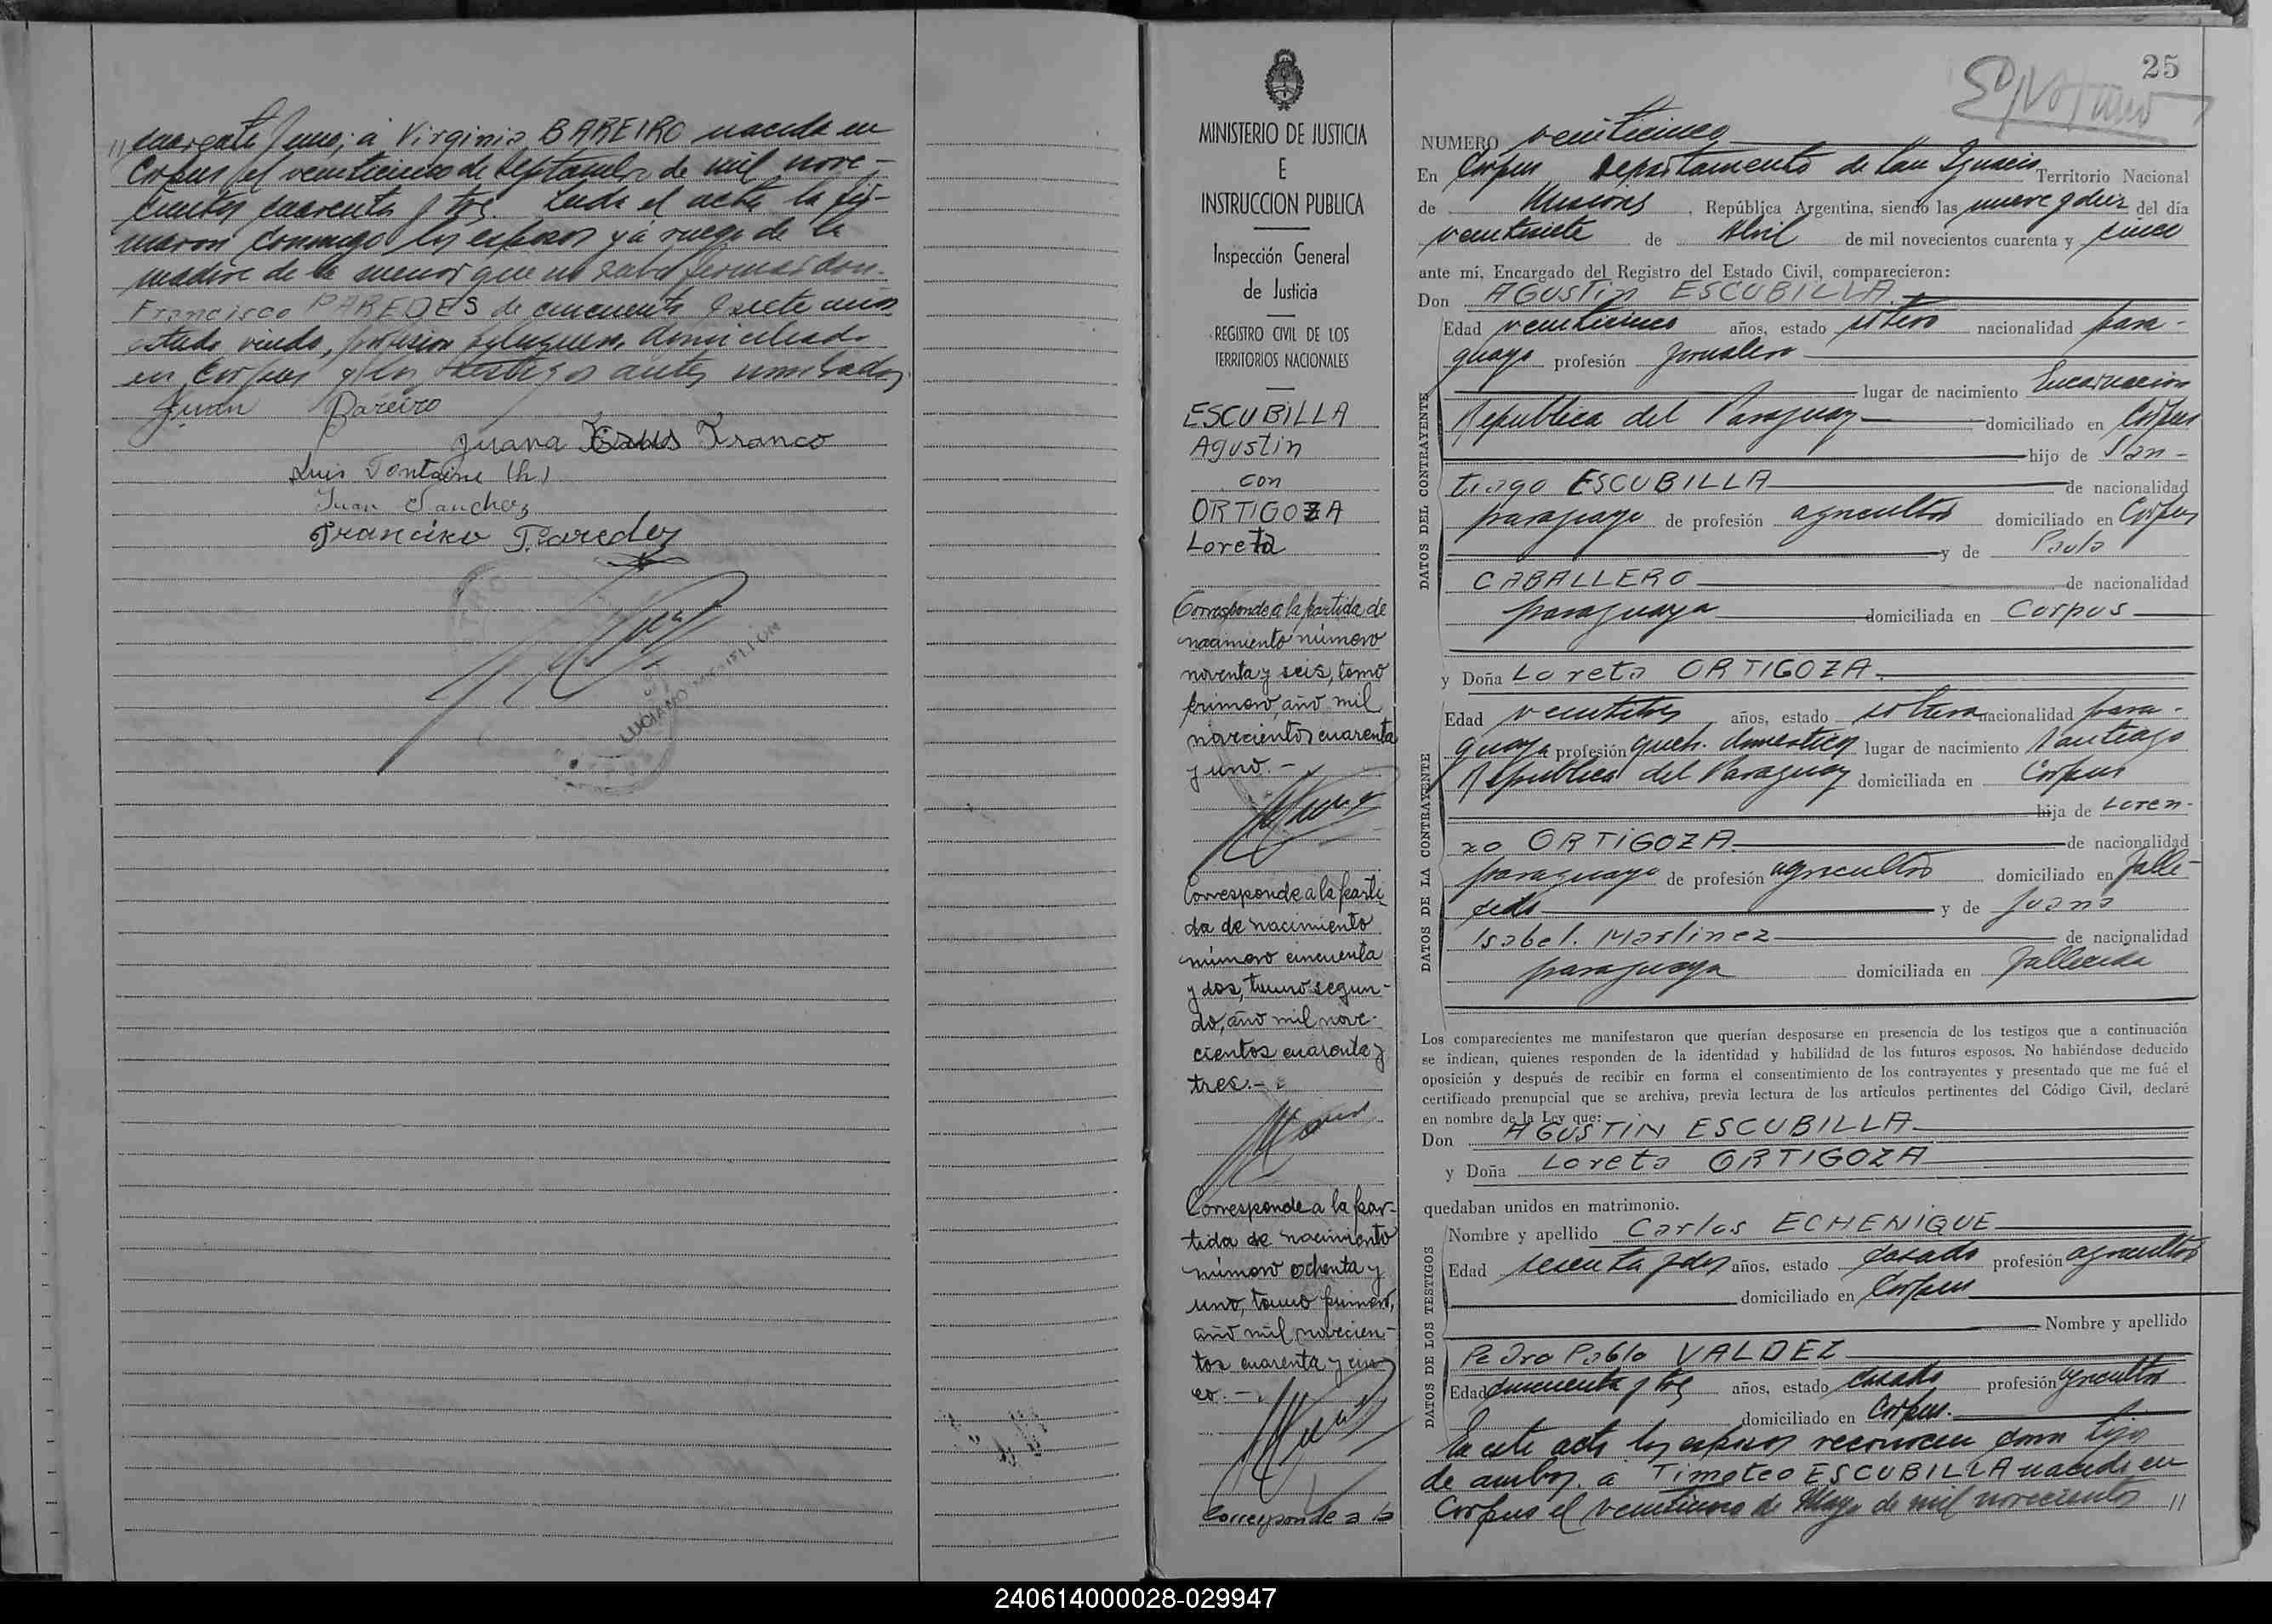 // cuarenta y uno; a Virginia BAREIRO nacida en
Corpus el veinticinco de Septiembre de mil nove-
cientos cuarenta y tres. Leida el acta la fir-
maron conmigo los esposos y a ruego de la
madre de la menor que no sabe firmar don
Francisco PAREDES de cincuenta y siete años
estado viudo, profesion peluquero, domiciliado
en Corpus y los testigos antes nombrados.
Juan Bareiro
Juana Franco
Luis Fontaine (h.)
Juan Sanchez
Francisco Paredes
LUCIANO
25
MINISTERIO DE JUSTICIA
E
INSTRUCCION PUBLICA
Inspección General
de Justicia
REGISTRO CIVIL DE LOS
TERRITORIOS NACIONALES
ESCUBILLA
Agustin
con
ORTIGOZA
Loreta
Corresponde a la partida de
nacimiento número
noventa y seis, tomo
primero, año mil
novecientos cuarenta
y uno.-
Corresponde a la parti
da de nacimiento
número cincuenta
y dos, tomo segun-
do, año mil nove-
cientos cuarenta y
tres.-
Corresponde a la par-
tida de nacimiento
número ochenta y
uno, tomo primero,
año mil novecien-
tos cuarenta y cin
co.-
Corresponde a la
NUMERO veinticinco
En Corpus Departamento de San Ignacio Territorio Nacional
de Misiones, República Argentina, siendo las nueve y diez del día
veintisiete de Abril de mil novecientos cuarenta y cinco
ante mí, Encargado del Registro del Estado Civil, comparecieron:
Don AGUSTIN ESCUBILLA.
DATOS DEL CONTRAYENTE
Edad veinticinco años, estado soltero nacionalidad para-
guayo profesión Jornalero
lugar de nacimiento Encarnacion
Republica del Paraguay domiciliado en Corpus
hijo de San-
tiago ESCUBILLA de nacionalidad
paraguayo de profesión agricultor domiciliado en Corpus
y de Paula
CABALLERO de nacionalidad
paraguaya domiciliada en Corpus
y Doña Loreta ORTIGOZA.
DATOS DE LA CONTRAYENTE
Edad veintitres años, estado soltera nacionalidad para-
guaya profesión queh. domesticos lugar de nacimiento Santiago
Republica del Paraguay domiciliada en Corpus
hija de Loren-
zo ORTIGOZA de nacionalidad
paraguayo de profesión agricultor domiciliado en falle-
cido y de Juana
Isabel. Martinez de nacionalidad
paraguaya domiciliada en fallecida
Los comparecientes me manifestaron que querían desposarse en presencia de los testigos que a continuación
se indican, quienes responden de la identidad y habilidad de los futuros esposos. No habiéndose deducido
oposición y después de recibir en forma el consentimiento de los contrayentes y presentado que me fué el
certificado prenupcial que se archiva, previa lectura de los artículos pertinentes del Código Civil, declaré
en nombre de la Ley que:
Don AGUSTIN ESCUBILLA
y Doña Loreta ORTIGOZA
quedaban unidos en matrimonio.
DATOS DE LOS TESTIGOS
Nombre y apellido Carlos ECHENIQUE
Edad sesenta y dos años, estado casado profesión agricultor
domiciliado en Corpus
Nombre y apellido
Pedro Pablo VALDEZ
Edad cincuenta y tres años, estado casado profesión agricultor
domiciliado en Corpus.
En este acto los esposos reconocen como hijos
de ambos. a Timoteo ESCUBILLA nacido en
Corpus el veintiuno de Mayo de mil novecientos //
240614000028-029947